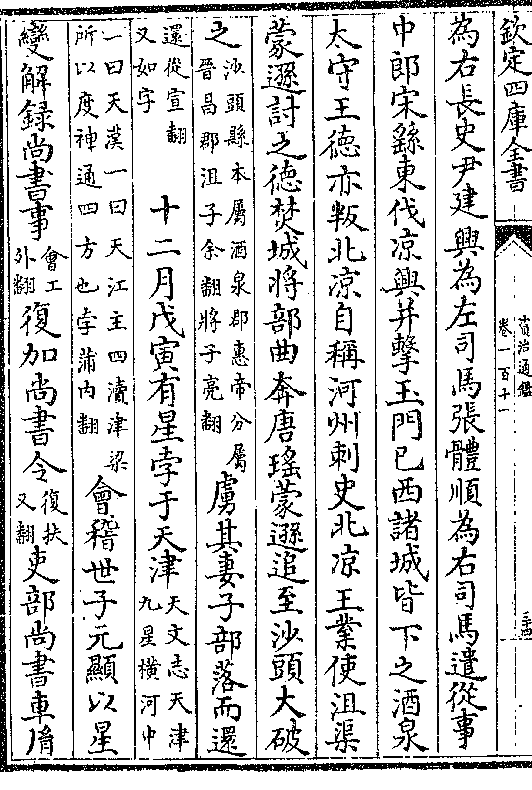 欽定四庫全書
資治通鑑
卷一百十一
為右長史尹建興為左司馬張體順為右司馬遣從事
中郎宋繇東伐涼興并擊玉門已西諸城皆下之酒泉
太守王德亦叛北凉自稱河州刺史北凉王業使沮渠
蒙遜討之德焚城將部曲奔唐瑤蒙遜追至沙頭大破
之沙頭縣本屬酒泉郡惠帝分屬晉昌郡沮子余翻將子亮翻虜其妻子部落而還
還從宣翻又如字十二月戊寅有星孛于天津天文志天津九星橫河中
一曰天漢一曰天江主四瀆津梁所以度神通四方也孛蒲内翻會稽世子元顯以星
變解録尚書事會工外翻復加尚書令復扶又翻吏部尚書車㣧